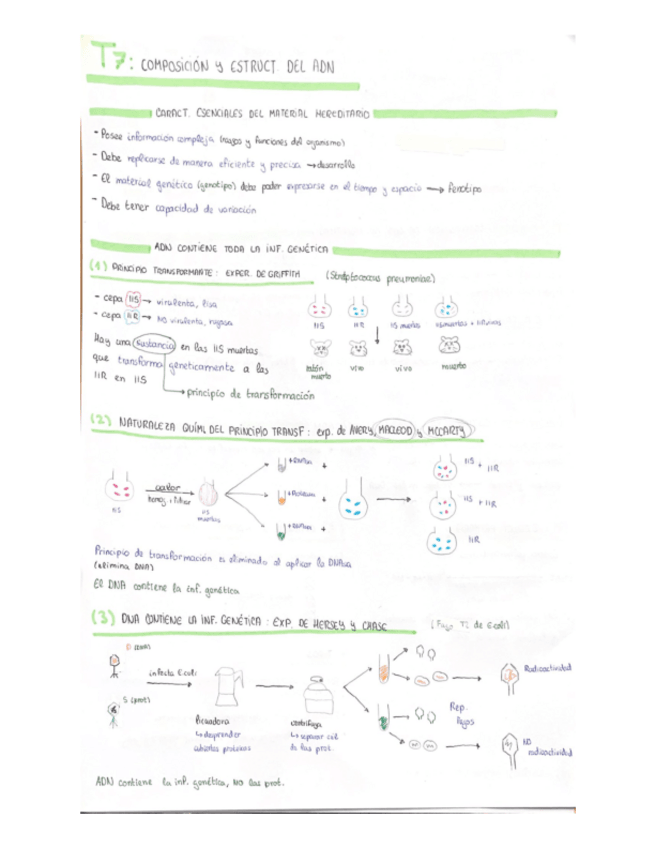 T7: COMPOSICIÓN y ESTRUCT. DEL ADN
CARACT. ESENCIALES DEL MATERIAL HEREDITARIO
- Posee información compleja (rasgos y funciones del organismo)
- Debe replicarse de manera eficiente y precisa → desarrollo
- El material genético (genotipo) debe poder expresarse en el tiempo y espacio → Fenotipo
- Debe tener capacidad de variación
ADN CONTIENE TODA LA INF. GENÉTICA
(1) PRINCIPIO TRANSFORMANTE: EXPER. DE GRIFFITH (Streptococcus pneumoniae)
- cepa IIS → virulenta, lisa
- cepa IIR → No virulenta, rugosa
IIS IIR IIS muertas IIS muertas + IIR vivas
Hay una sustancia en las IIS muertas
que transforma genéticamente a las
IIR en IIS
→ principio de transformación
ratón muerto vivo vivo muerto
(2) NATURALEZA QUÍMI. DEL PRINCIPIO TRANSF: exp. de AVERY, MACLEOD y MCCARTY
IIS
calor
IIS muertas
+
+
+
IIS + IIR
IIS + IIR
IIR
Principio de transformación es eliminado al aplicar la DNAsa
(elimina DNA)
El DNA contiene la inf. genética
(3) DNA CONTIENE LA INF. GENÉTICA: EXP. DE HERSEY y CHASE (Fago T2 de E.coli)
infecta E.coli
S (prot)
Licuadora
↳ desprender
cubiertas proteicas
centrifuga
↳ separar cél.
de las prot.
Rep.
fagos
Radioactividad
NO
radioactividad
ADN contiene la inf. genética, NO las prot.